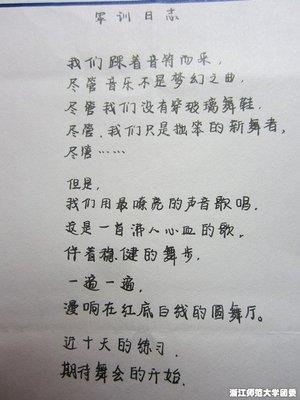 军训日志
我们踩着音符而来,
尽管音乐不是梦幻之曲,
尽管我们没有穿玻璃舞鞋,
尽管,我们只是拙笨的新舞者,
尽管……
但是,
我们用最嘹亮的声音歌唱,
这是一首沸人心血的歌。
伴着稳健的舞步,
一遍一遍,
漫响在红底白线的圆舞厅。
近十天的练习,
期待舞会的开始.
浙江师范大学团委